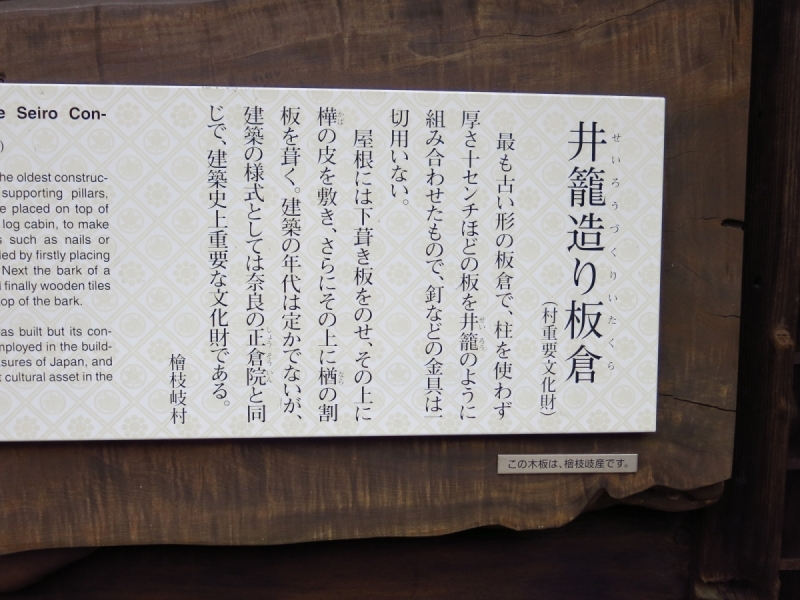 井籠造り板倉
せいろうづくりいたくら
(村重要文化財)
最も古い形の板倉で、柱を使わず
厚さ十センチほどの板を井籠のように
せいろう
組み合わせたもので、釘などの金具は一
切用いない。
屋根には下葺き板をのせ、その上に
樺の皮を敷き、さらにその上に楢の割
かば
なら
板を葺く。建築の年代は定かでないが、
建築の様式としては奈良の正倉院と同
しょうそういん
じで、建築史上重要な文化財である。
檜枝岐村
e Seiro Con-
)
he oldest construc-
supporting pillars,
e placed on top of
log cabin, to make
s such as nails or
ed by firstly placing
Next the bark of a
finally wooden tiles
op of the bark.
as built but its con-
mployed in the build-
sures of Japan, and
t cultural asset in the
この木板は、檜枝岐産です。